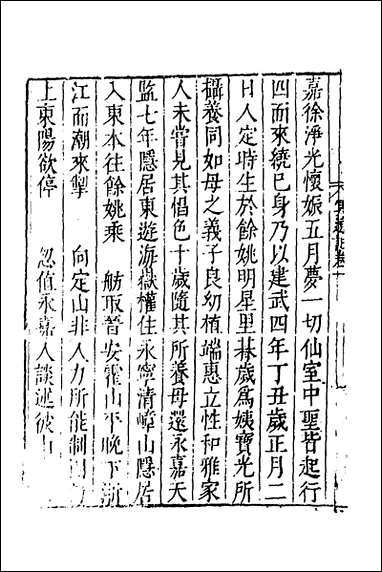 嘉徐淨光懷娠五月夢一切仙室中聖皆起行
四面來繞已身乃以建武四年丁丑歲正月二
日人定時生於餘姚明星里朞歲爲姨寶光所
攝養同如母之義子良幼植端惠立性和雅家
人未嘗見其愠色十歲隨其所養母還永嘉天
監七年隱居東遊海嶽權住永寧清嶂山隱居
入東本往餘姚乘 舫取晉安霍山平晚下浙
江而潮來掣 向定山非人力所能制
上東陽欲停 忽值永嘉人談述彼山